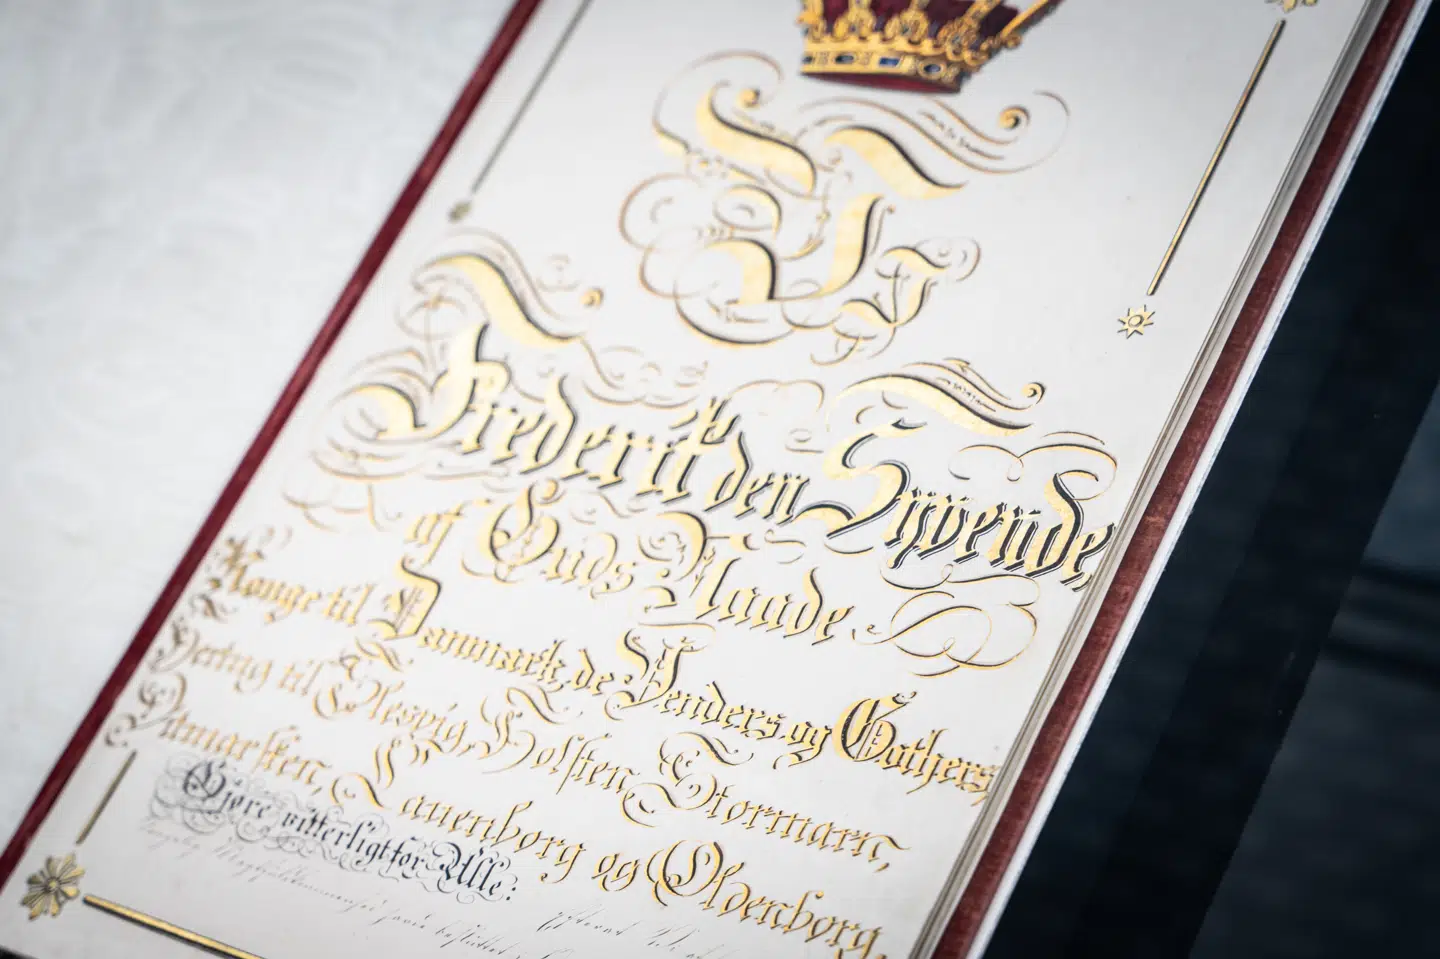 Frederik den Syvende,
af Guds Naade
Konge til Danmark, de Venders og Gothers,
Hertug til Slesvig, Holsten, Stormarn,
Ditmarsken, Lauenborg og Oldenborg,
Gjøre vitterligt for Alle: